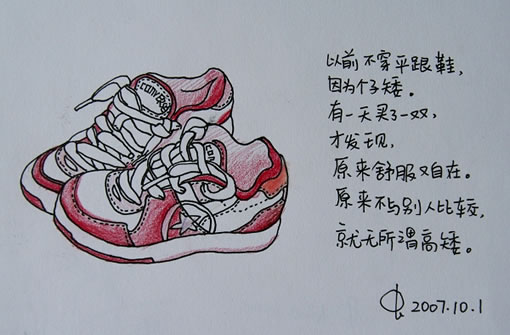 CONVERSE
以前不穿平跟鞋，
因为个子矮。
有一天买了一双，
才发现，
原来舒服又自在。
原来不与别人比较，
就无所谓高矮。
2007.10.1